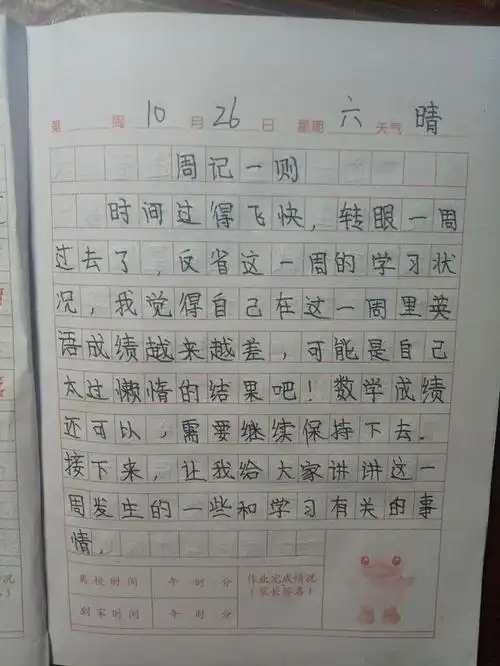 第 周 10 月 26 日 星期 六 天气 晴
周记一则
时间过得飞快，转眼一周
过去了，反省这一周的学习状
况，我觉得自己在这一周里英
语成绩越来越差，可能是自己
太过懒惰的结果吧！数学成绩
还可以，需要继续保持下去.
接下来，让我给大家讲讲这一
周发生的一些和学习有关的事
情.
离校时间 午 时 分 作业完成情况
（家长签名）
到家时间 午 时 分